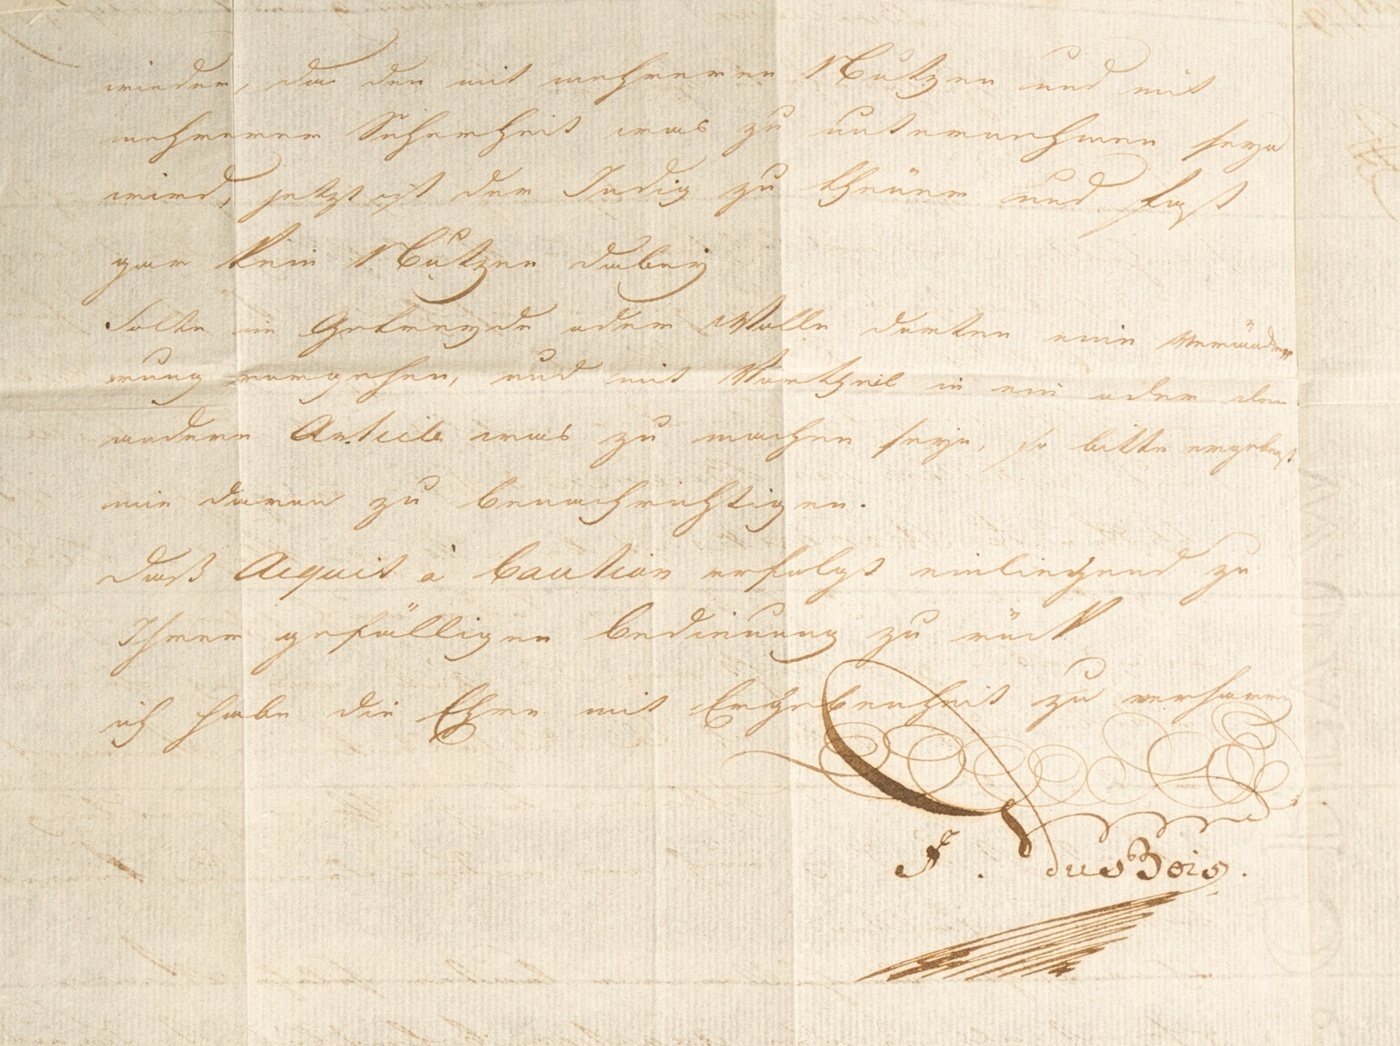 wieder, da den mit mehreren Nutzen und mit
mehrerer Sicherheit was zu unternehmen seyn
wird, jetzt ist der Indig zu theuer und fast
gar kein Nutzen dabey
Solte in Getreyde oder Wolle dorten eine Verände
rung vorgehen, und mit Vortheil in ein oder der
andern Article was zu machen seyn, so bitte ergebenst
mir davon zu benachrichtigen.
daß Acquit à Caution erfolgt einliegend zu
Ihrer gefälligen bedienung zu rück
ich habe die Ehre mit Ergebenheit zu verharren
F. dusBois.